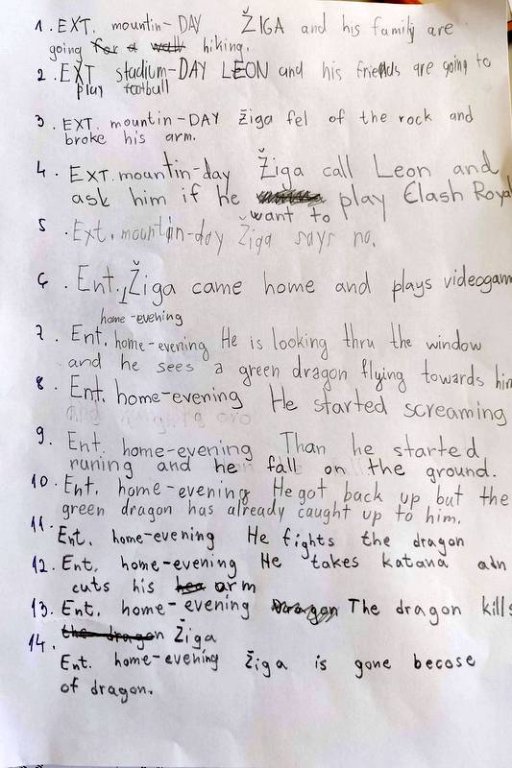 1. EXT. mountin-DAY ŽIGA and his family are
going for a walk hiking.
2. EXT stadium-DAY LEON and his friends are going to
play football
3. EXT. mountin-DAY Žiga fel of the rock and
broke his arm.
4. EXT. mountin-day Žiga call Leon and
ask him if he want to play Clash Royal
5. Ext. mountain-day Žiga says no.
6. Ent. home-evening Žiga came home and plays videogam
7. Ent. home-evening He is looking thru the window
and he sees a green dragon flying towards him
8. Ent. home-evening He started screaming
9. Ent. home-evening Than he started
runing and he fall on the ground.
10. Ent. home-evening He got back up but the
green dragon has already caught up to him.
11. Ent. home-evening He fights the dragon
12. Ent. home-evening He takes katana adn
cuts his arm
13. Ent. home-evening The dragon kills
the dragon Žiga
14. Ent. home-evening Žiga is gone becose
of dragon.